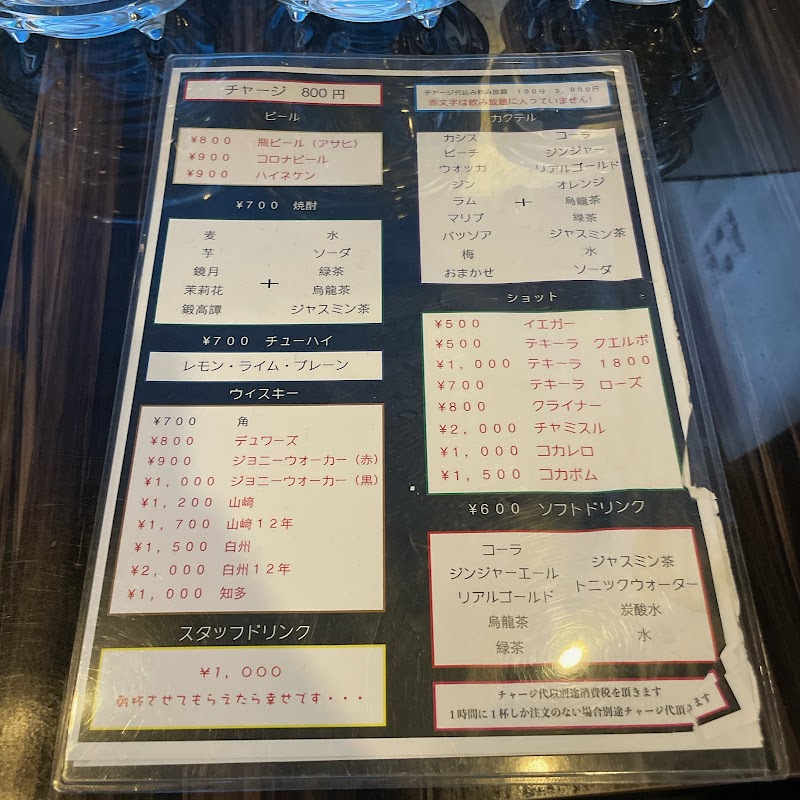 チャージ 800円
ビール
¥800 瓶ビール（アサヒ）
¥900 コロナビール
¥900 ハイネケン
¥700 焼酎
麦 水
芋 ソーダ
鏡月 緑茶
茉莉花 + 烏龍茶
鍛高譚 ジャスミン茶
¥700 チューハイ
レモン・ライム・プレーン
ウィスキー
¥700 角
¥800 デュワーズ
¥900 ジョニーウォーカー（赤）
¥1,000 ジョニーウォーカー（黒）
¥1,200 山崎
¥1,700 山崎12年
¥1,500 白州
¥2,000 白州12年
¥1,000 知多
スタッフドリンク
¥1,000
乾杯させてもらえたら幸せです・・・
チャージ代込み飲み放題 100分 3,000円
赤文字は飲み放題に入っていません!
カクテル
カシス コーラ
ピーチ ジンジャー
ウォッカ リアルゴールド
ジン オレンジ
ラム + 烏龍茶
マリブ 緑茶
パッソア ジャスミン茶
梅 水
おまかせ ソーダ
ショット
¥500 イエガー
¥500 テキーラ クエルボ
¥1,000 テキーラ 1800
¥700 テキーラ ローズ
¥800 クライナー
¥2,000 チャミスル
¥1,000 コカレロ
¥1,500 コカボム
¥600 ソフトドリンク
コーラ ジャスミン茶
ジンジャーエール トニックウォーター
リアルゴールド 炭酸水
烏龍茶 水
緑茶
チャージ代以別途消費税を頂きます
1時間に1杯しか注文のない場合別途チャージ代頂きます